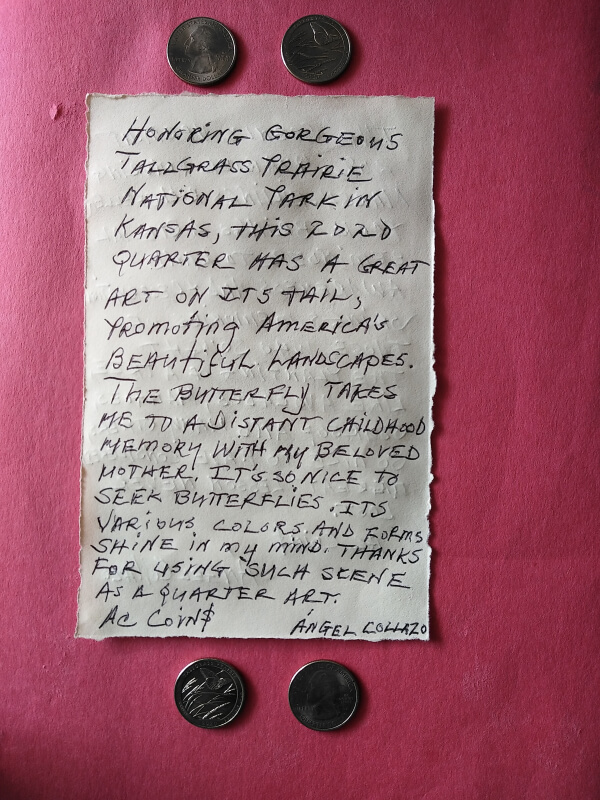 HONORING GORGEOUS
TALLGRASS PRAIRIE
NATIONAL PARK IN
KANSAS, THIS 2020
QUARTER HAS A GREAT
ART ON ITS TAIL,
PROMOTING AMERICA'S
BEAUTIFUL LANDSCAPES.
THE BUTTERFLY TAKES
ME TO A DISTANT CHILDHOOD
MEMORY WITH MY BELOVED
MOTHER. IT'S SO NICE TO
SEEK BUTTERFLIES. ITS
VARIOUS COLORS AND FORMS
SHINE IN MY MIND. THANKS
FOR USING SUCH SCENE
AS A QUARTER ART.
AC COIN$ ÁNGEL COLLAZO